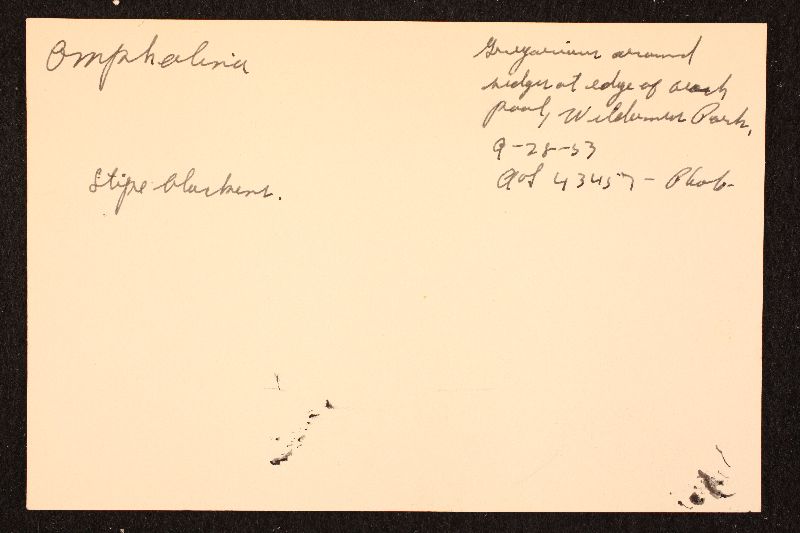 Omphalina
Gregarious around
sedges at edge of
pool, Wilderness Park,
9-28-53
AHS 43457 - Phot.
Stipe blackens.